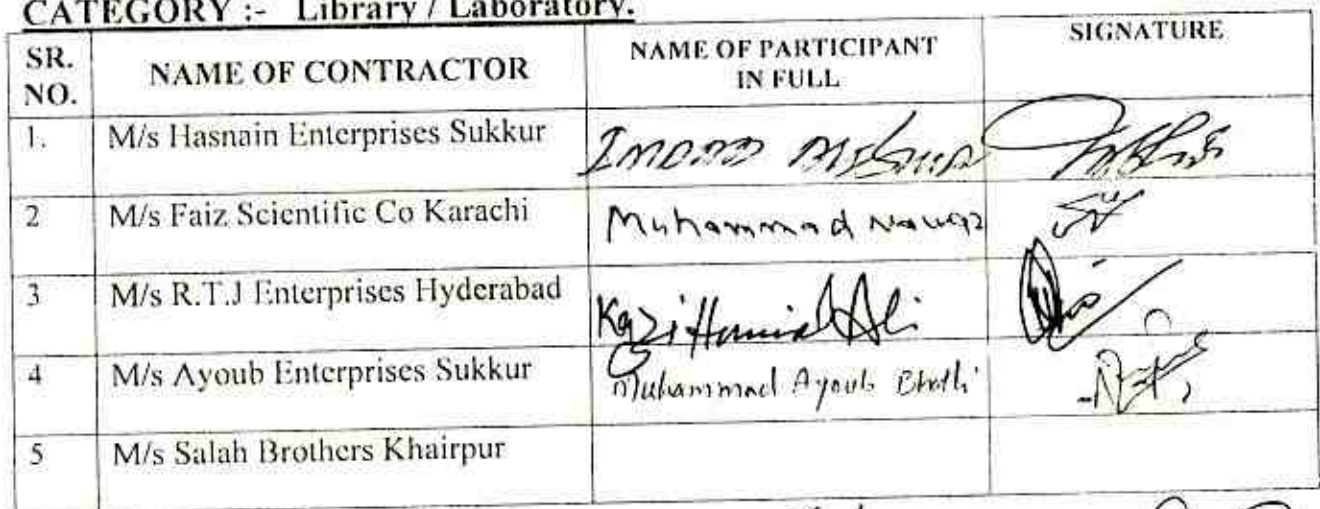 CATEGORY :- Library / Laboratory.
SR. NO. NAME OF CONTRACTOR NAME OF PARTICIPANT IN FULL SIGNATURE
1. M/s Hasnain Enterprises Sukkur
2 M/s Faiz Scientific Co Karachi Muhammad Nawaz
3 M/s R.T.J Enterprises Hyderabad Kazi Hamid Ali
4 M/s Ayoub Enterprises Sukkur Muhammad Ayoub Bhatti
5 M/s Salah Brothers Khairpur